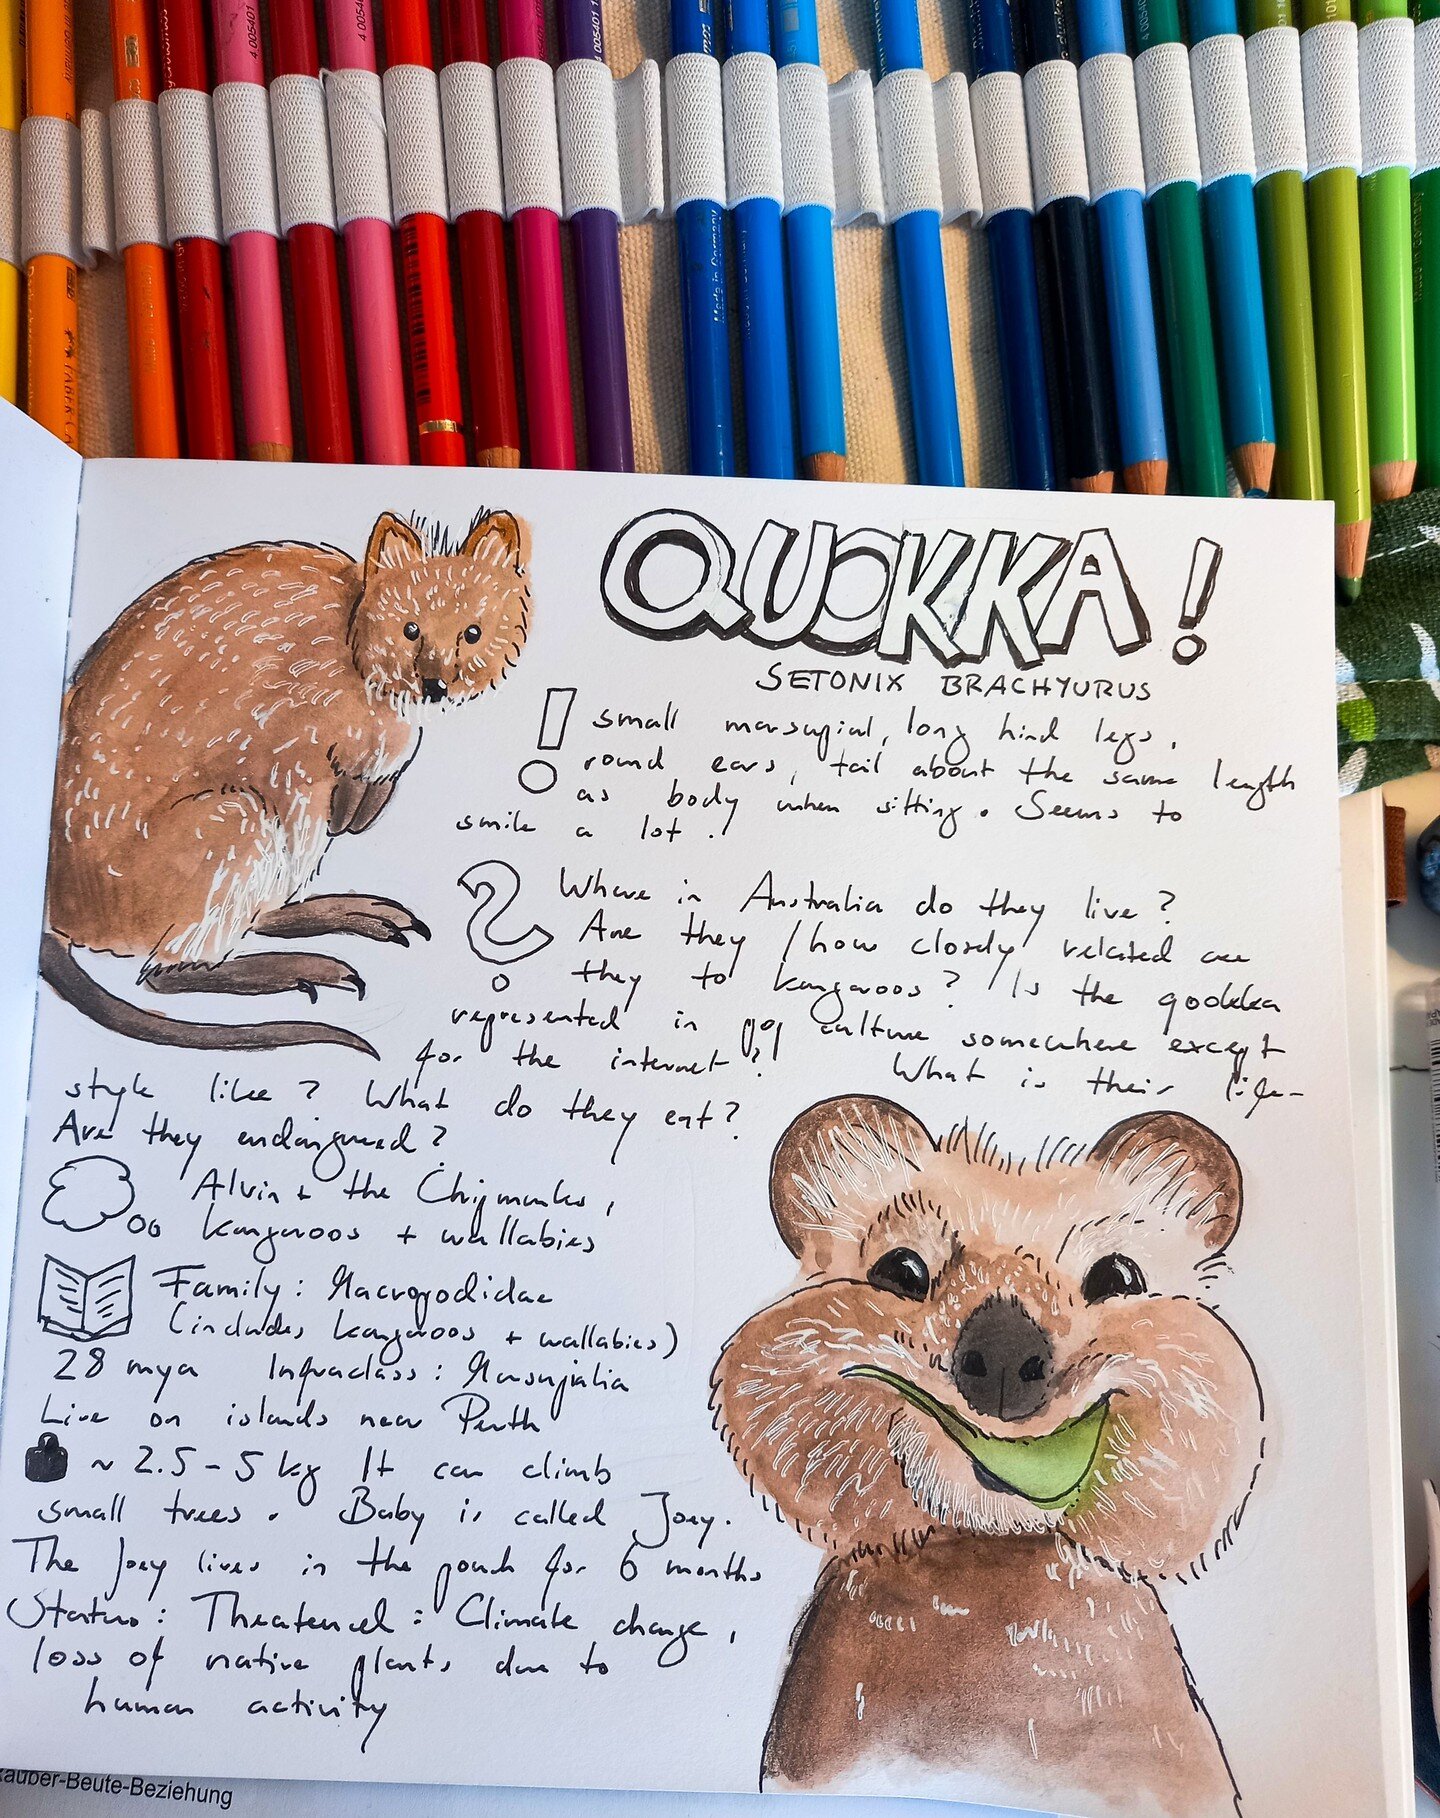 4 005401
4 005401
Made in Germany
Made in Germany
FABER-CA
QUOKKA!
SETONIX BRACHYURUS
! small marsupial, long hind legs,
round ears, tail about the same length
as body when sitting. Seems to
smile a lot.
? Where in Australia do they live?
Are they / how closely related are
they to kangaroos? Is the qookka
represented in pop culture somewhere except
for the internet? What is their life-
style like? What do they eat?
Are they endangered?
Alvin + the Chipmunks,
kangaroos + wallabies
Family: Macropodidae
(includes kangaroos + wallabies)
28 mya Infraclass: Marsupialia
Live on islands near Perth
~ 2.5 - 5 kg It can climb
small trees. Baby is called Joey.
The Joey lives in the pouch for 6 months
Status: Threatened: Climate change,
loss of native plants due to
human activity
äuber-Beute-Beziehung